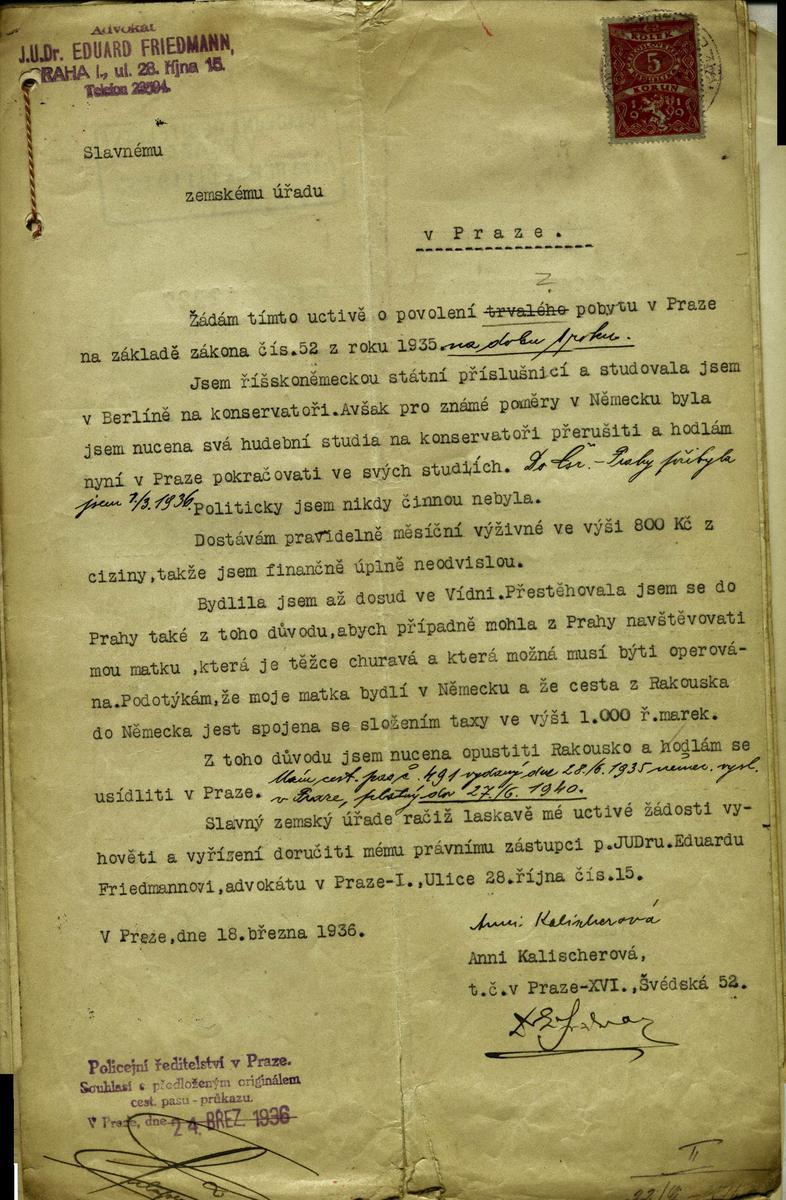 Advokát
J.U.Dr. EDUARD FRIEDMANN,
PRAHA I., ul. 28. října 15.
Telefon 29594.
KOLEK
5
KORUN
1919
Slavnému
zemskému úřadu
v Praze.
Žádám tímto uctivě o povolení trvalého pobytu v Praze
na základě zákona čís.52 z roku 1935 na dobu 1 roku.
Jsem říšskoněmeckou státní příslušnicí a studovala jsem
v Berlíně na konservatoři.Avšak pro známé poměry v Německu byla
jsem nucena svá hudební studia na konservatoři přerušiti a hodlám
nyní v Praze pokračovati ve svých studiích. Do Čsr. - Prahy přibyla
jsem 7/3. 1936. Politicky jsem nikdy činnou nebyla.
Dostávám pravidelně měsíční výživné ve výši 800 Kč z
ciziny,takže jsem finančně úplně neodvislou.
Bydlila jsem až dosud ve Vídni.Přestěhovala jsem se do
Prahy také z toho důvodu,abych případně mohla z Prahy navštěvovati
mou matku ,která je těžce churavá a která možná musí býti operová-
na.Podotýkám,že moje matka bydlí v Německu a že cesta z Rakouska
do Německa jest spojena se složením taxy ve výši 1.000 ř.marek.
Z toho důvodu jsem nucena opustiti Rakousko a hodlám se
Mám cest. pas č. 491 vydaný dne 28/6. 1935 němec. vysl.
usídliti v Praze. v Praze, platný do 27/6. 1940.
Slavný zemský úřade račiž laskavě mé uctivé žádosti vy-
hověti a vyřízení doručiti mému právnímu zástupci p.JUDru.Eduardu
Friedmannovi,advokátu v Praze-I.,Ulice 28.října čís.15.
V Praze,dne 18.března 1936.
Anni Kalischerová
Anni Kalischerová,
t.č.v Praze-XVI.,Švédská 52.
Policejní ředitelství v Praze.
Souhlasí s předloženým originálem
cest. pasu - průkazu.
V Praze, dne 24. BŘEZ. 1936
II